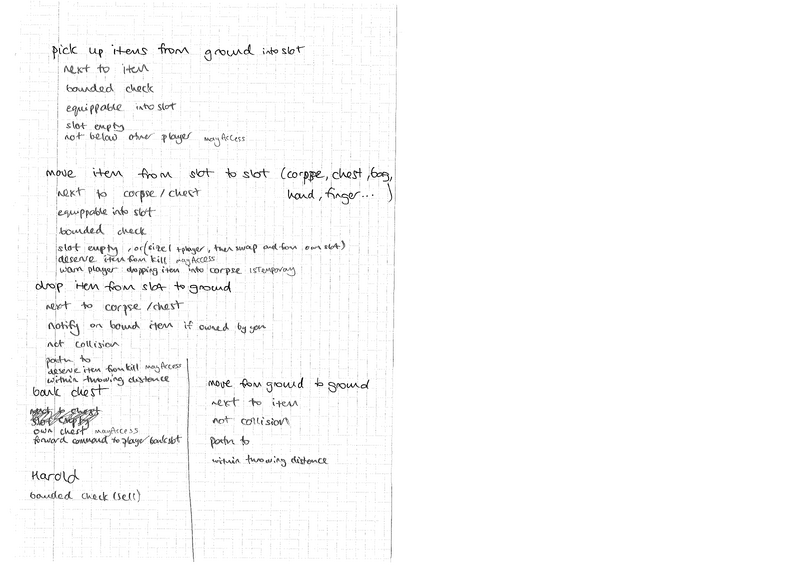 pick up items from ground into slot
next to item
bounded check
equippable into slot
slot empty
not below other player mayAccess
move item from slot to slot (corpse, chest, bag,
hand, finger... )
next to corpse / chest
equippable into slot
bounded check
slot empty , or (size 1 + player, then swap and from own slot)
deserve item from kill mayAccess
warn player dropping item into corpse isTemporary
drop item from slot to ground
next to corpse /chest
notify on bound item if owned by you
not collision
path to
deserve item from kill mayAccess
within throwing distance
bank chest
next to chest
slot empty
own chest mayAccess
forward command to player bankslot
Harold
bounded check (sell)
move from ground to ground
next to item
not collision
path to
within throwing distance